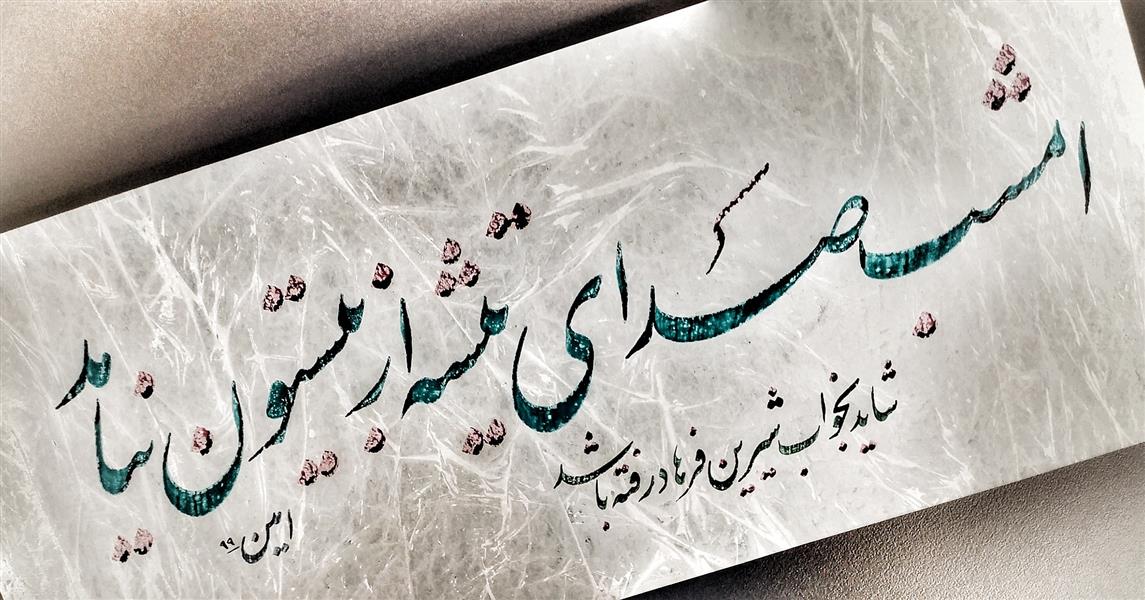 امشب صدای تیشه از بیستون نیامد
شاید بخواب شیرین فرهاد رفته باشد
امین ۹۹